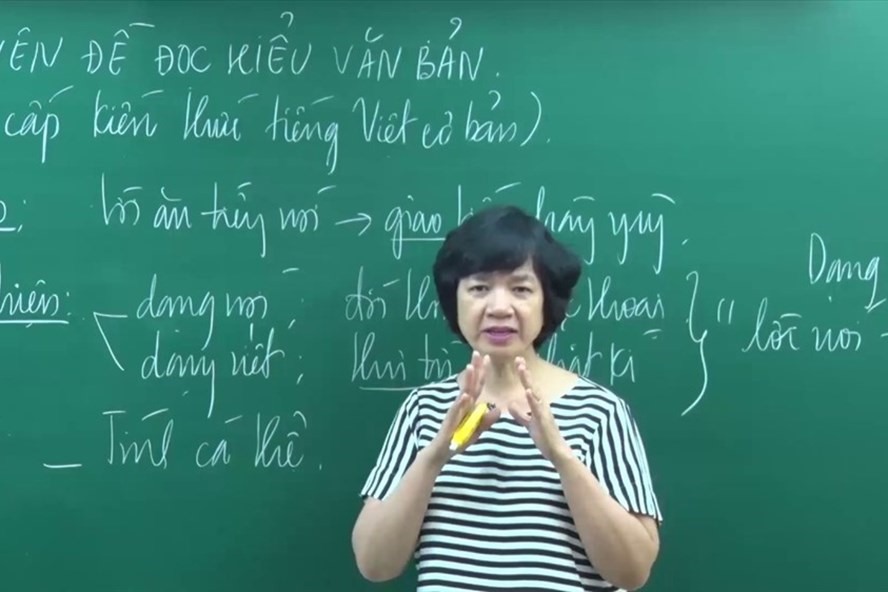 YÊN ĐỀ ĐỌC HIỂU VĂN BẢN.
cấp kiến thức tiếng Việt cơ bản).
lời ăn tiếng nói → giao hằng ngày.
hiện: dạng nói ; đối thoại
dạng viết ; thư từ nhật kí
} " Dạng
lời nói
– Tính cá thể.